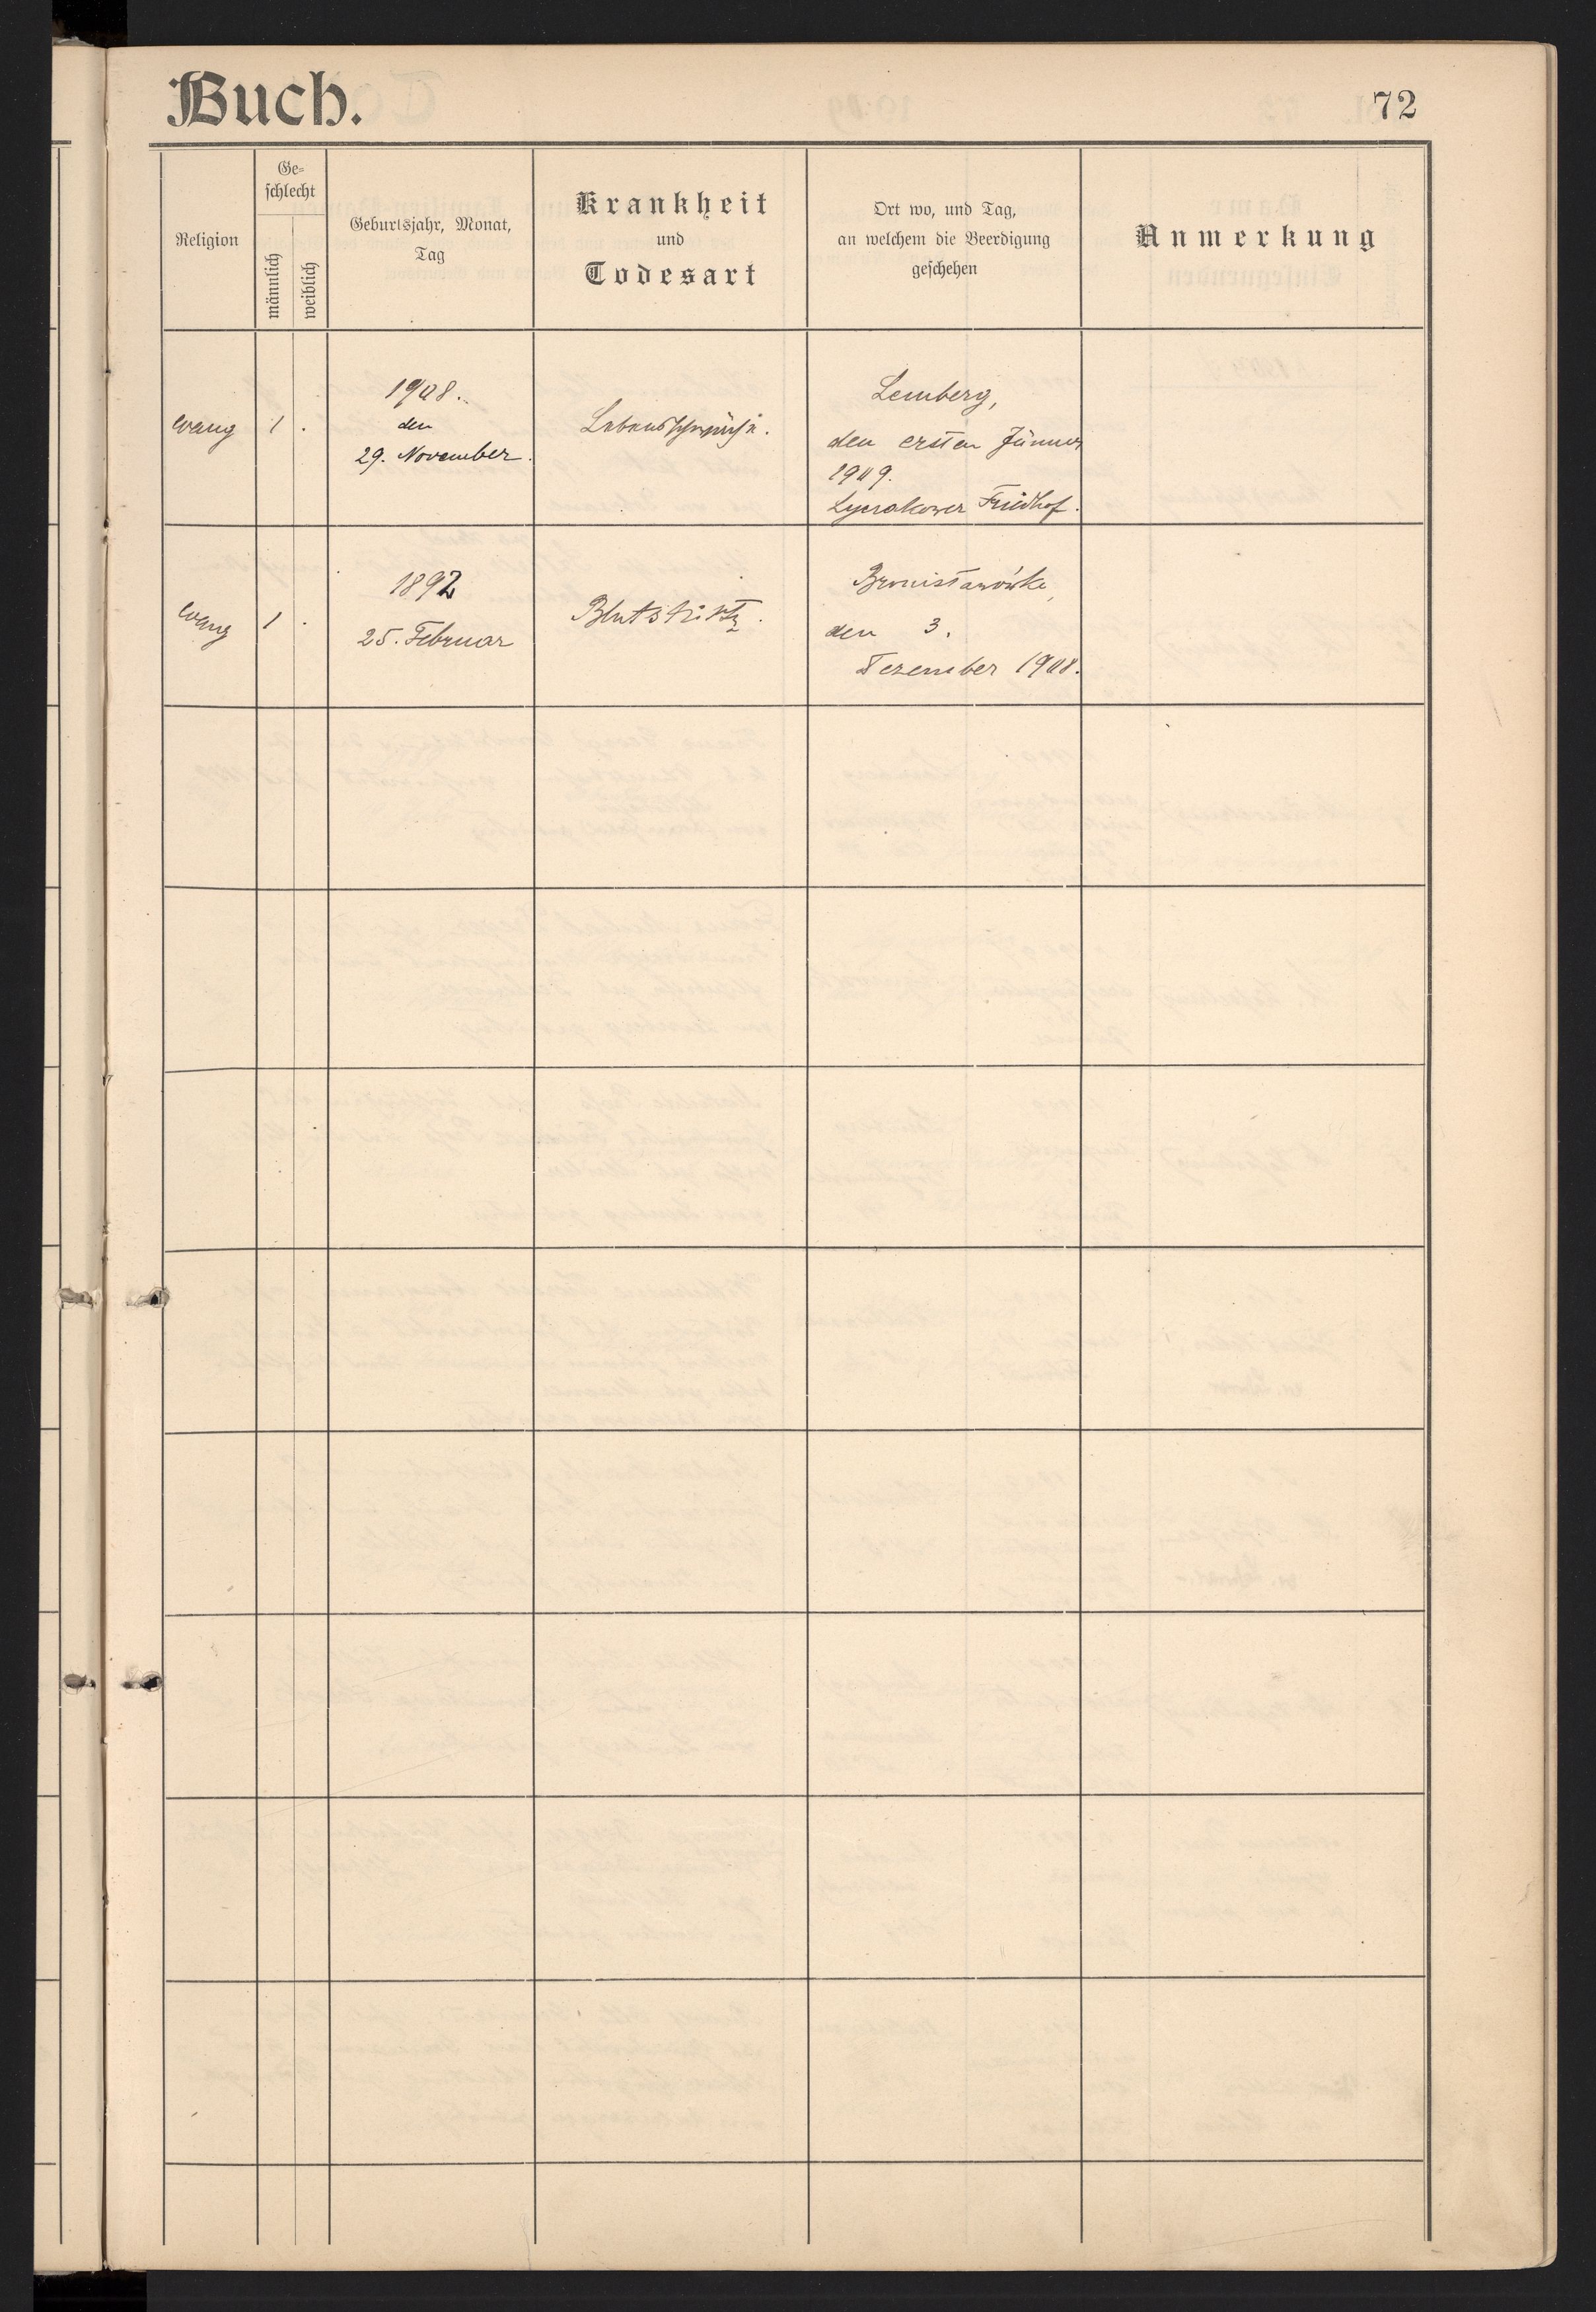 Buch.
72
Religion
Ge-
schlecht
männlich
weiblich
Geburtsjahr, Monat,
Tag
Krankheit
und
Todesart
Ort wo, und Tag,
an welchem die Beerdigung
geschehen
Anmerkung
evang
1 .
1908.
den
29. November.
Lebensschwäche.
Lemberg,
den ersten Jänner
1909.
Lyczakower Friedhof.
evang
1 .
1892
25. Februar
Blutsturz.
Bronisławówka,
den 3.
Dezember 1908.